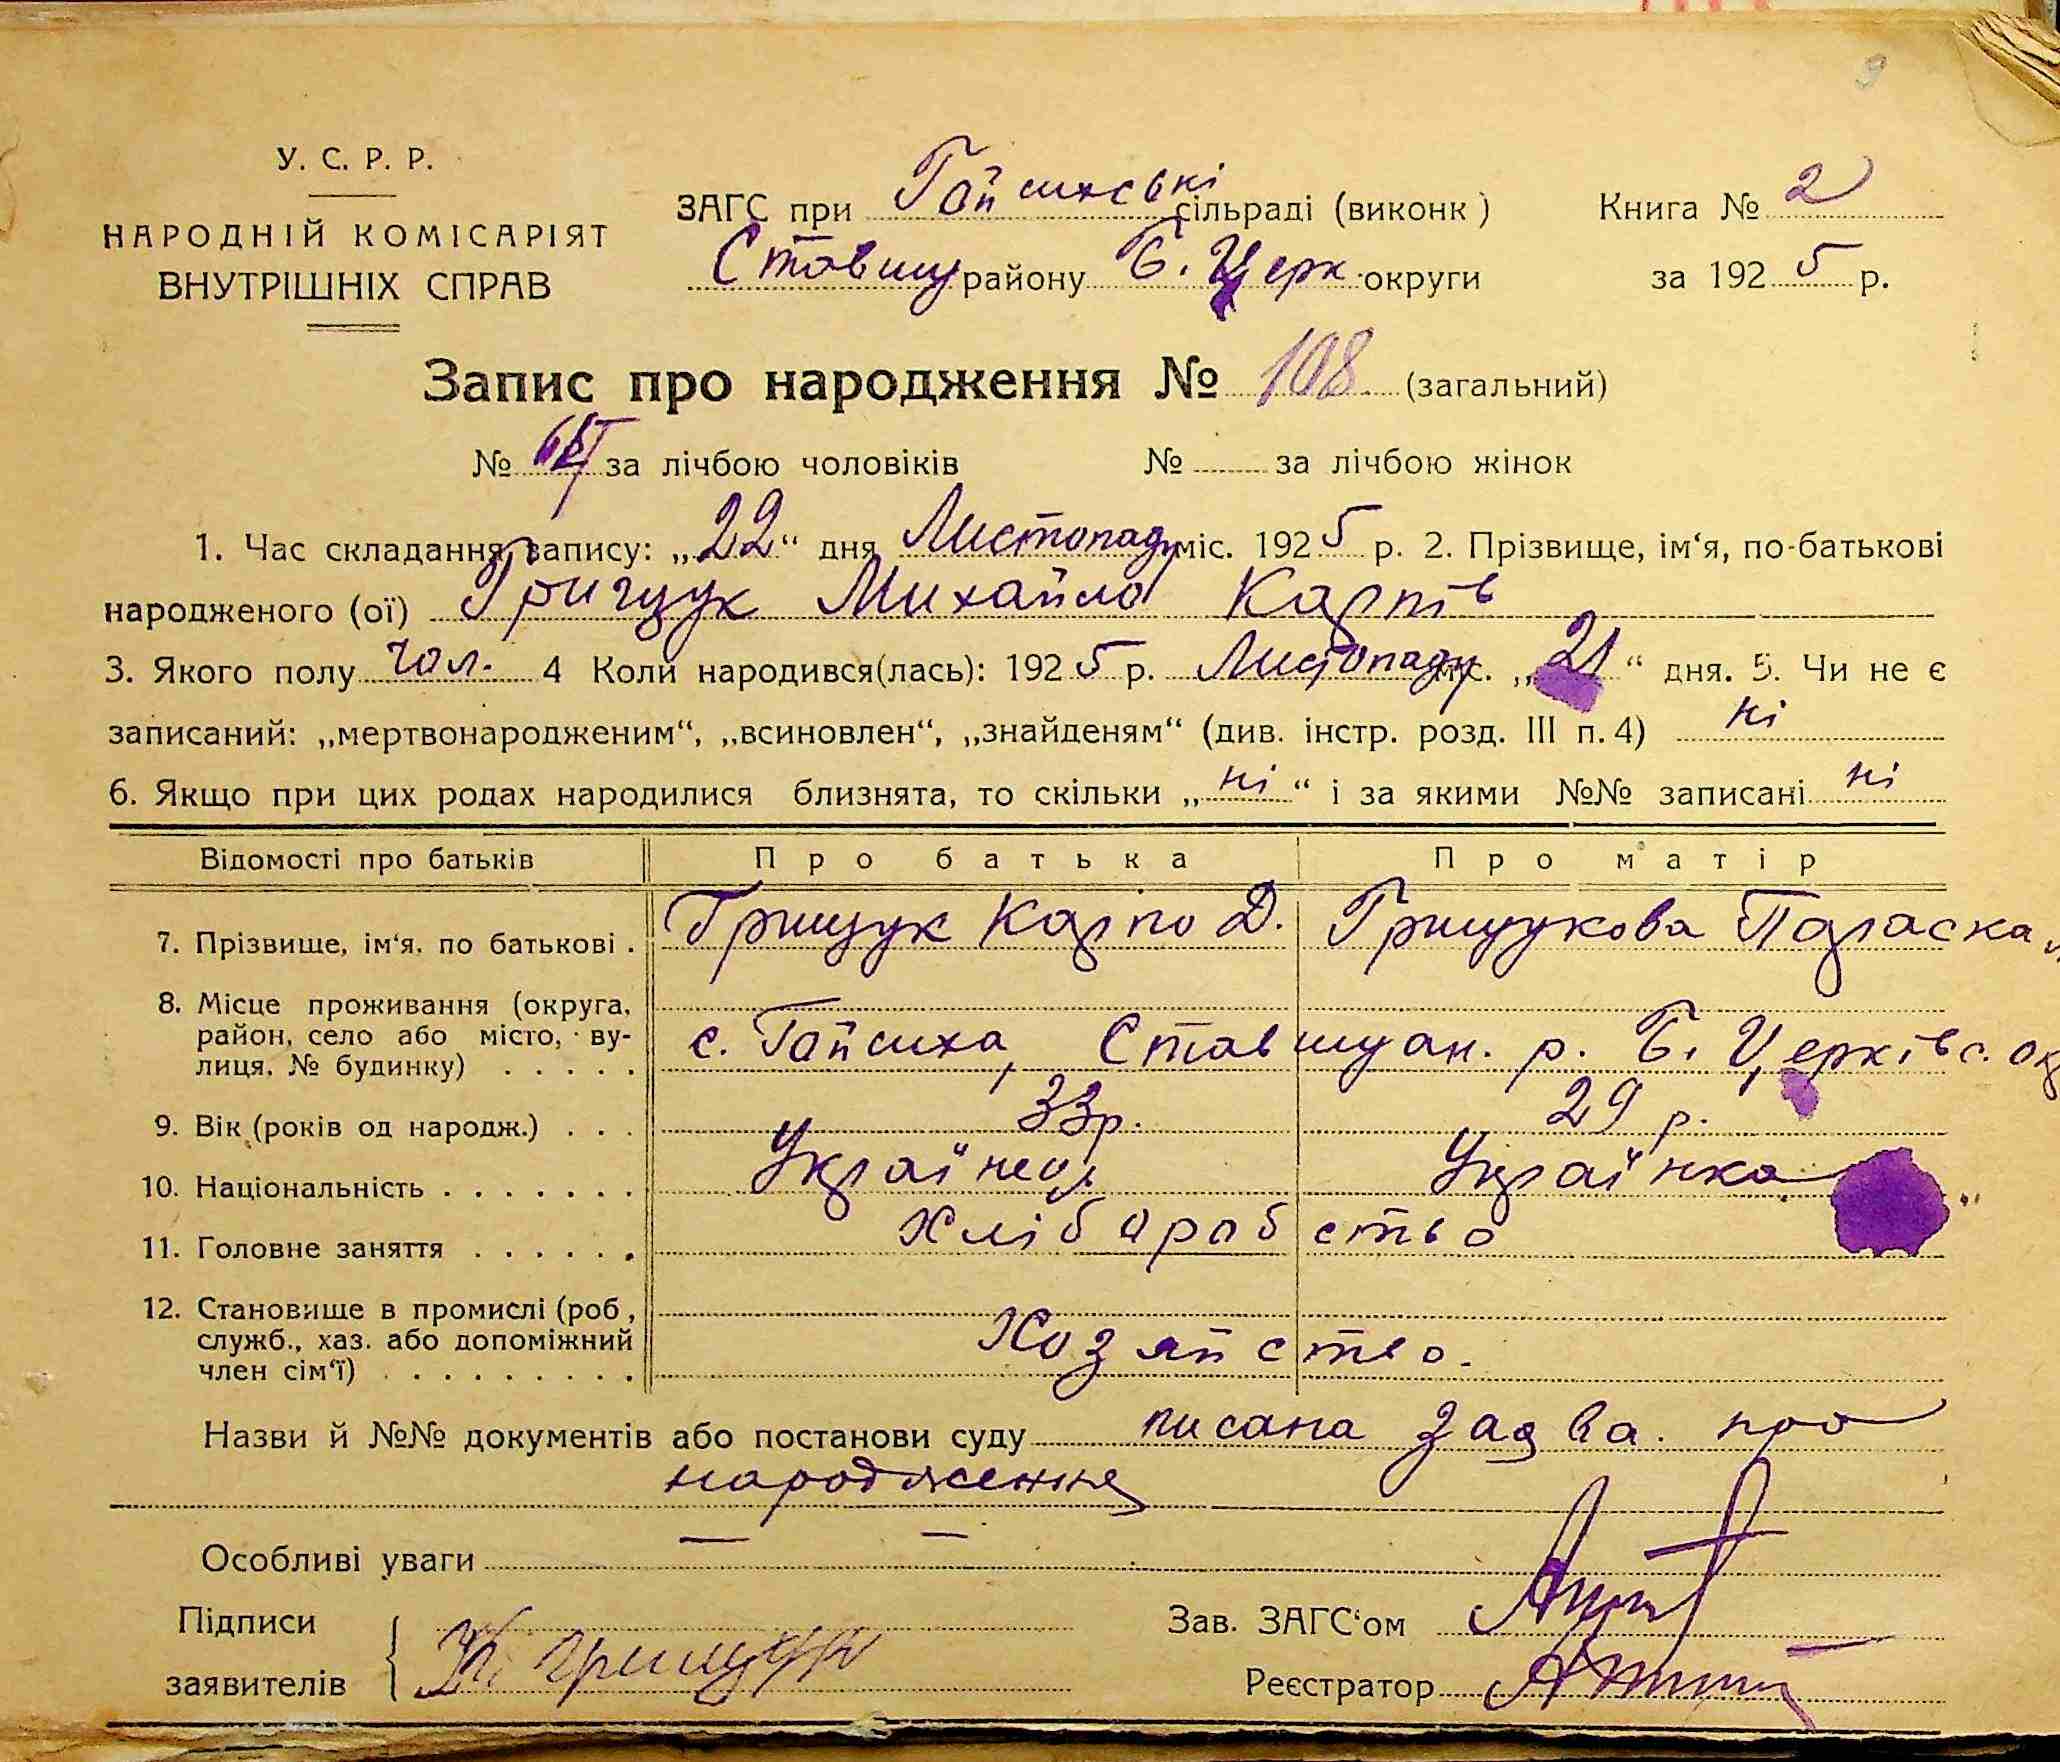 9
У. С. Р. Р.
НАРОДНІЙ КОМІСАРІЯТ
ВНУТРІШНІХ СПРАВ
ЗАГС при Гайсихські сільраді (виконк)
Ставищ району Б. Церк. округи
Книга № 2
за 1925 р.
Запис про народження № 108 (загальний)
№ за лічбою чоловіків № за лічбою жінок
1. Час складання запису: „22“ дня Листопаду міс. 1925 р. 2. Прізвище, ім‘я, по-батькові
народженого (ої) Грищук Михайло Карпів
3. Якого полу чол. 4 Коли народився(лась): 1925 р. Листопаду міс. „21“ дня. 5. Чи не є
записаний: „мертвонародженим“, „всиновлен“, „знайденям“ (див. інстр. розд. III п. 4) ні
6. Якщо при цих родах народилися близнята, то скільки „ні“ і за якими №№ записані ні
Відомості про батьків Про батька Про матір
7. Прізвище, ім‘я, по батькові . Грищук Карпо Д. Грищукова Параска
8. Місце проживання (округа,
район, село або місто, ву-
лиця, № будинку) . . . . . с. Гайсиха, Ставищан. р. Б. Церківс. ок
9. Вік (років од народж.) . . . 33 р. 29 р.
10. Національність . . . . . . . Українець Українка
11. Головне заняття . . . . . . Хлібарабство
12. Становище в промислі (роб.,
служб., хаз. або допоміжний
член сім‘ї) . . . . . . . . . Хозяйство.
Назви й №№ документів або постанови суду писана заява. про
народження
Особливі уваги — —
Підписи
заявителів К. Грищук
Зав. ЗАГС‘ом
Реєстратор